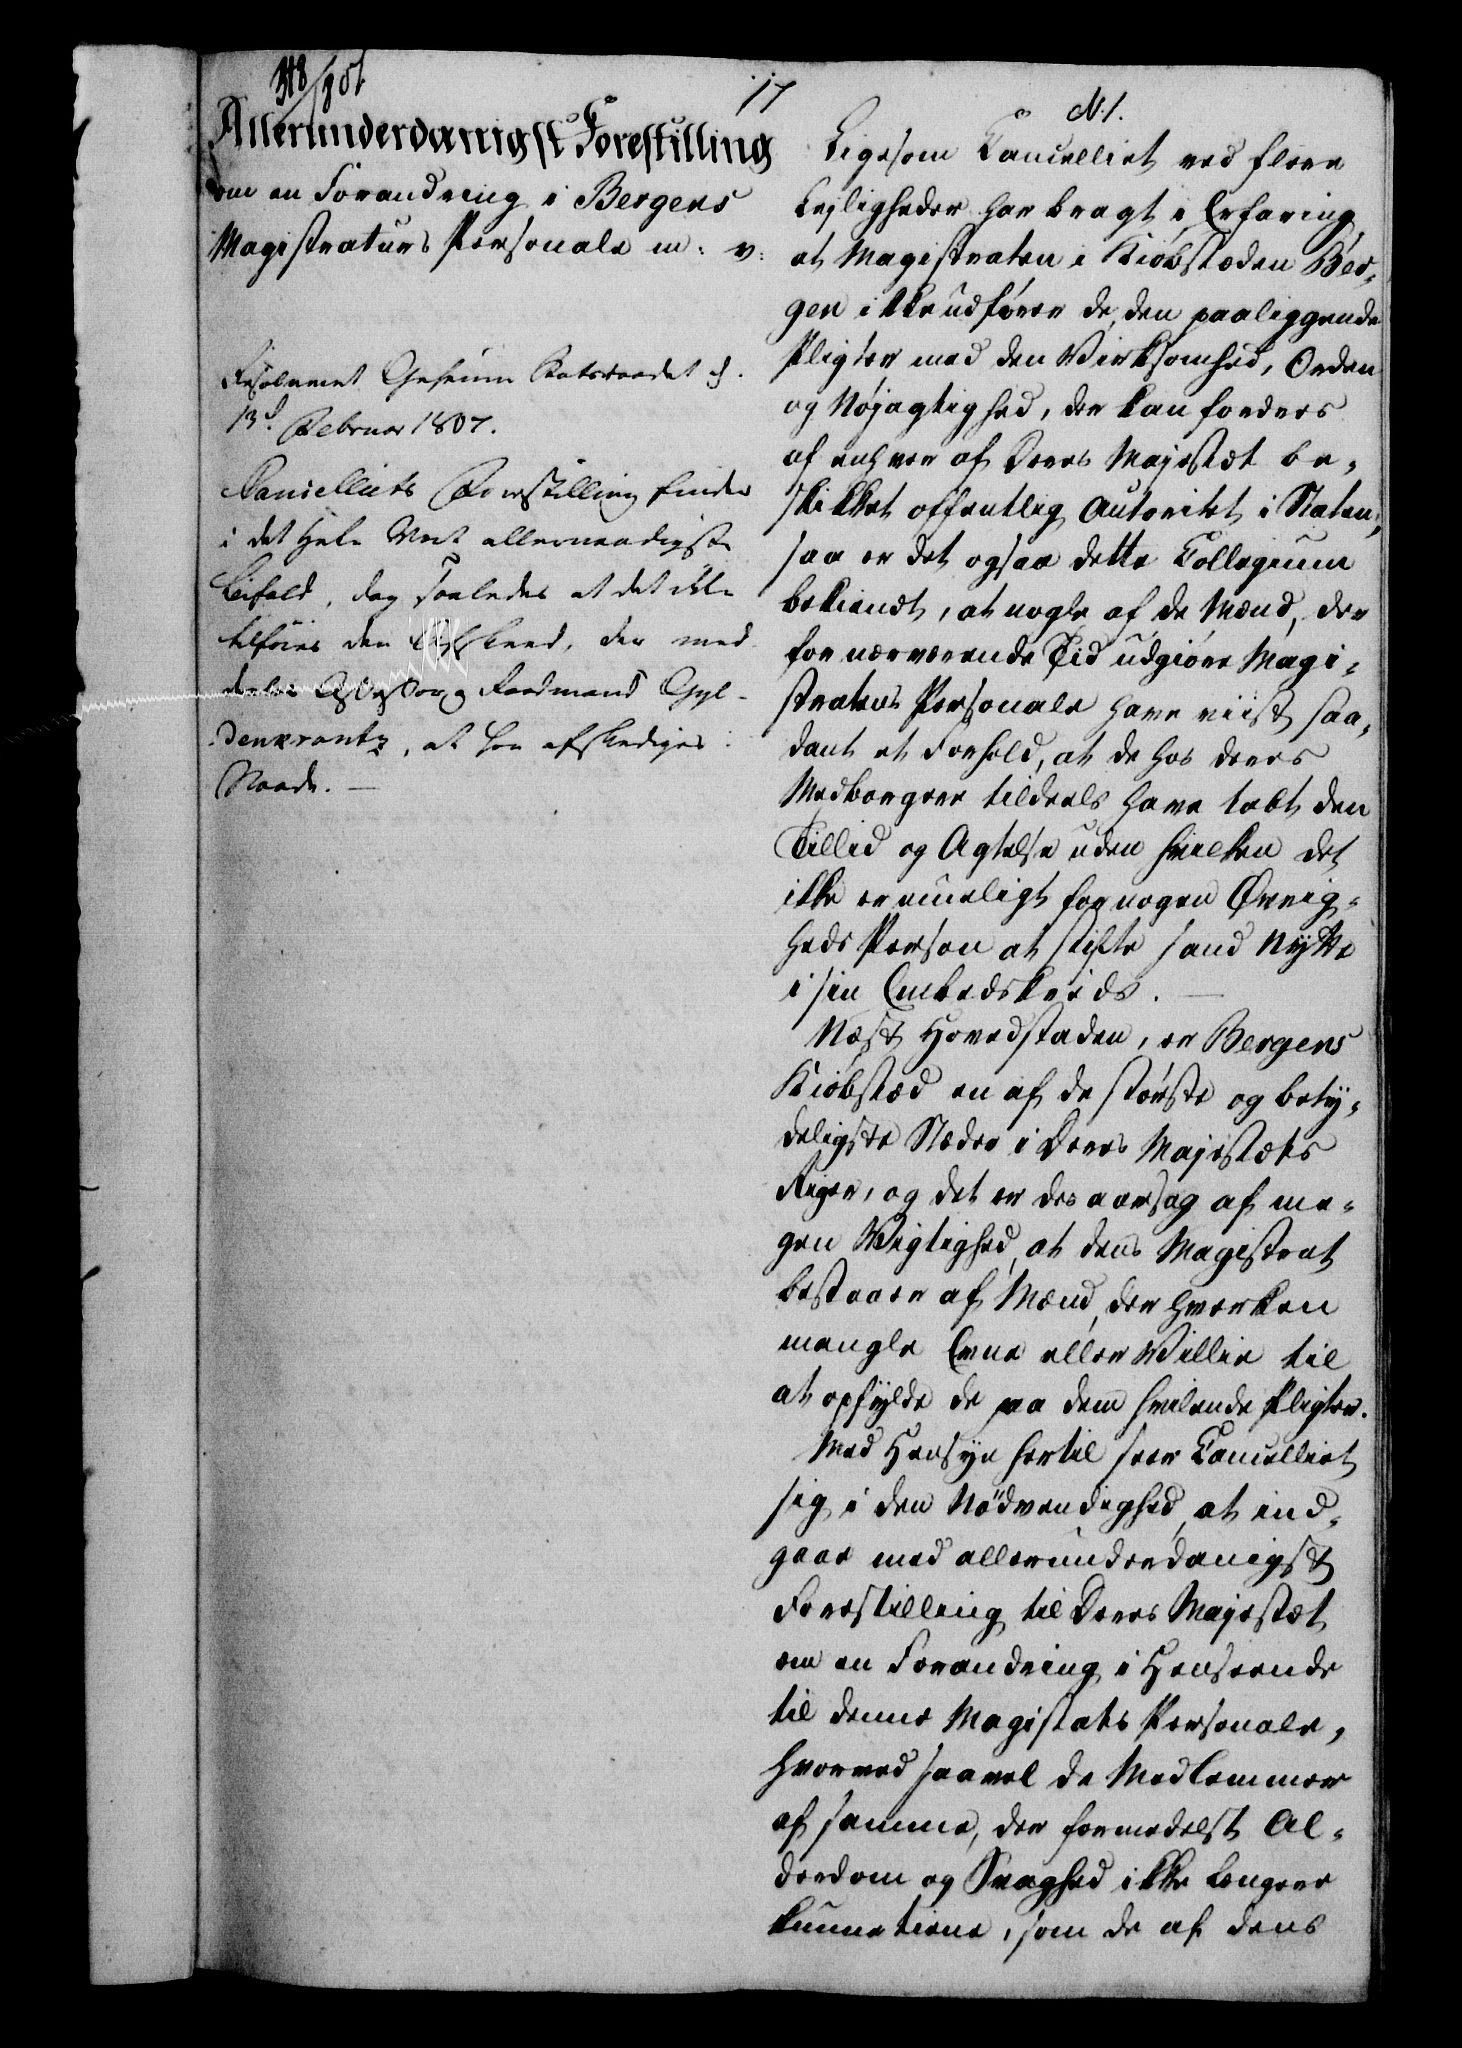 318/801
17
N. 1.
Allerunderdanigst Forestilling
om en Forandring i Bergens
Magistraturs Personale m: v:
Resolveret Geheime Statsraadet d.
13d Februar 1807.
Cancelliets Forestilling finder
i det Hele Vort allernaadigste
Bifald, dog saaledes at det ikke
tilføies den Afskeed, der med
deles Assessor og Raadmand Gyl-
denkrantz, at han afskediges i
Naade. —
Ligesom Cancelliet ved flere
Lejligheder har bragt i Erfaring
at Magistraten i Kiøbstæden Ber-
gen ikke udfører de, den paaliggende
Pligter med den Virksomhed, Orden
og Nøjagtighed, der kan fordres
af enhver af Deres Majestæt be-
skikket offentlig Autoritet i Staten,
saa er det ogsaa dette Collegium
bekiendt, at nogle af de Mænd, der
for nærværende Tid udgiøre Magi-
stratens Personale have viist saa-
dant et Forhold, at de hos deres
Medborgere tildeels have tabt den
Tillid og Agtelse uden hvilken det
ikke er mueligt for nogen Øvrig-
heds Person at stifte sand Nytte
i sin Embedskreds. —
Næst Hovedstaden, er Bergens
Kiøbstæd en af de største og bety-
deligste Stæder i Deres Majestæts
Riger, og det er desaarsag af me-
gen Vigtighed, at dens Magistrat
bestaaer af Mænd, der hverken
mangle Evne eller Villie til
at opfylde de paa dem hvilende Pligter.
Med Hensyn hertil seer Cancelliet
sig i den Nödvendighed, at ind-
gaae med allerunderdanigst
Forestilling til Deres Majestæt
om en Forandring i Henseende
til denne Magistats Personale,
hvorved saavel de Medlemmer
af samme, der formedelst Al-
derdom og Svaghed ikke længere
kunne tiene, som de af dens